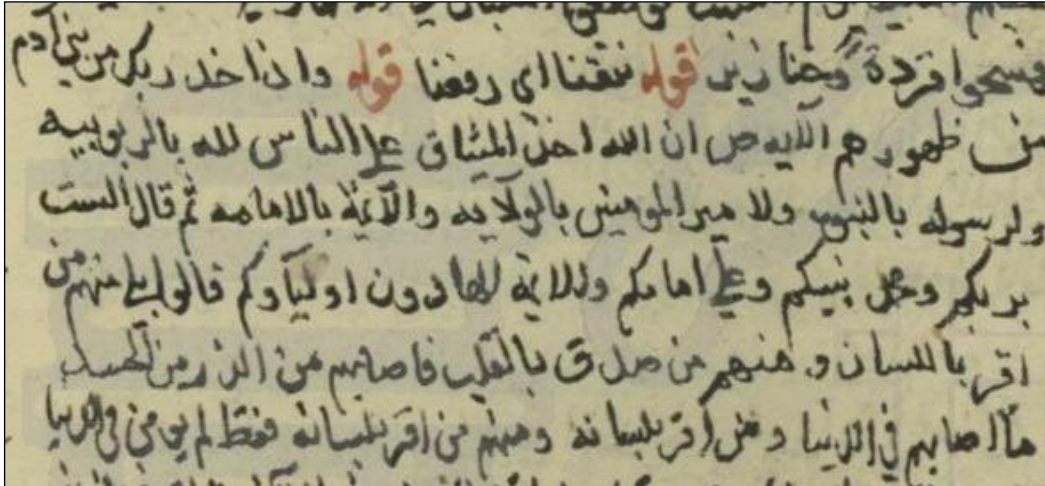 فمسخوا قردة وخنازير قوله نتقنا اي رفعنا قوله واذ اخذ ربك من بني ادم
من ظهورهم الآيه ص ان الله اخذ الميثاق علي الناس لله بالربوبيه
ولرسوله بالنبوه ولا ميرالمومنين بالولايه والآئمة بالامامه ثم قال الست
بربكم ومحمد نبيكم وعلي امامكم والائمة الهادون اوليآوكم قالوا بلي منهم من
اقر باللسان ومنهم من صدق بالقلب فاصابهم من الذر من الحسد
ما اصابهم في الدنيا ومن اقر بلسانه ومنهم من اقر بلسانه فقط لم يومن في الدنيا